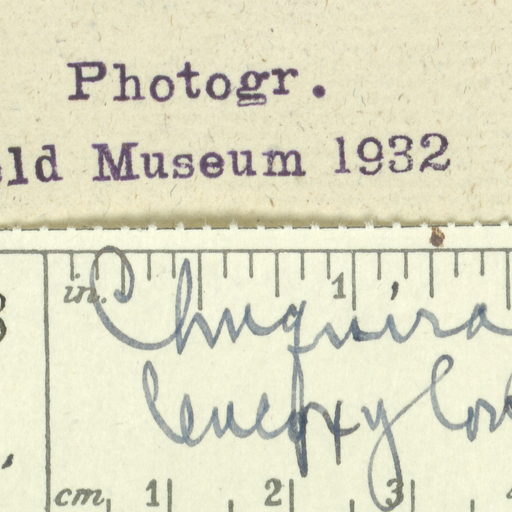 Photogr.
eld Museum 1932
in. 1
Chuquira
leucoxylo
cm 1 2 3